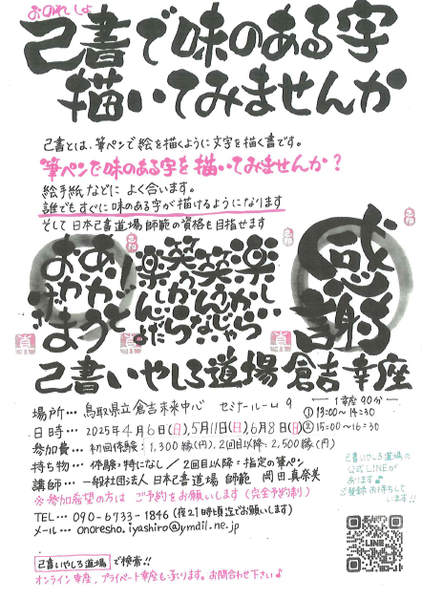 おのれしょ
己書で味のある字
描いてみませんか
己書とは、筆ペンで絵を描くように文字を描く書です。
筆ペンで味のある字を描いてみませんか？
絵手紙などに よく合います。
誰でもすぐに味のある字が描けるようになります
そして日本己書道場師範の資格も目指せます
ありがとう
おかげさま
楽しいから
笑うんじゃない
笑うから
楽しいんだよ
感謝
己書いやしろ道場 倉吉幸座
場所… 鳥取県立倉吉未来中心 セミナールーム9
日時… 2025年4月6日(日),5月11日(日),6月8日(日)
1幸座 90分
①13:00~14:30
②15:00~16:30
参加費… 初回体験:1,300縁(円),2回目以降:2,500縁(円)
持ち物… 体験:特になし/2回目以降:指定の筆ペン
講師… 一般社団法人 日本己書道場 師範 岡田真奈美
※参加希望の方は ご予約をお願いします(完全予約制)
TEL… 090-6733-1846(夜21時頃迄でお願いします)
メール… onoresho.iyashiro@ymail.ne.jp
己書いやしろ道場の
公式LINEが
あります♪
ご登録お待ちして
います!!
LINE
己書いやしろ道場 で検索!!
オンライン幸座,プライベート幸座も承ります。お問合わせ下さい♪